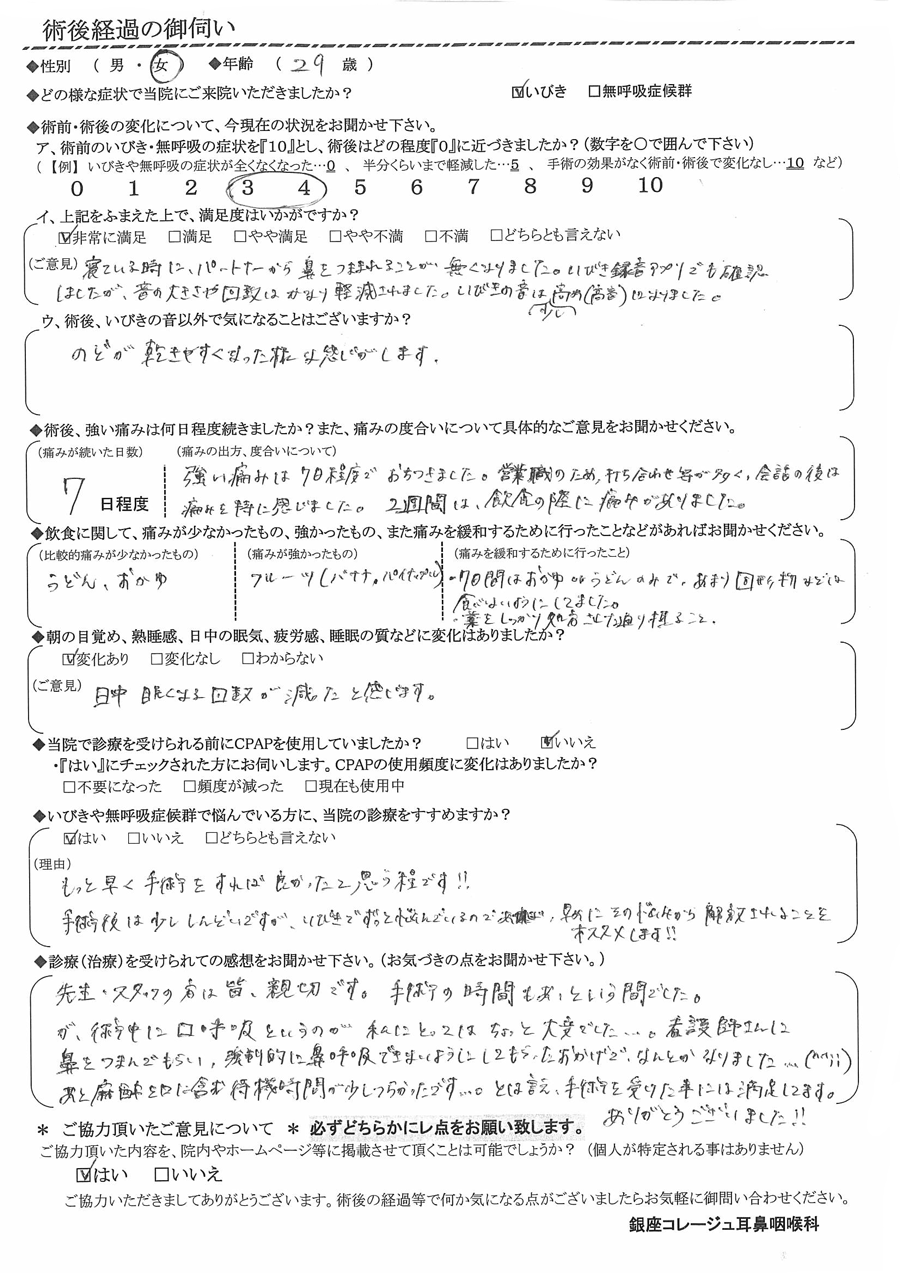 術後経過の御伺い
◆性別 ( 男 ・ 女 ) ◆年齢 ( 29 歳 )
◆どの様な症状で当院にご来院いただきましたか? ☑いびき □無呼吸症候群
◆術前・術後の変化について、今現在の状況をお聞かせ下さい。
ア、術前のいびき・無呼吸の症状を『10』とし、術後はどの程度『0』に近づきましたか?(数字を〇で囲んで下さい)
(【例】いびきや無呼吸の症状が全くなくなった…0 、 半分くらいまで軽減した…5 、 手術の効果がなく術前・術後で変化なし…10 など)
0 1 2 3 4 5 6 7 8 9 10
イ、上記をふまえた上で、満足度はいかがですか?
☑非常に満足 □満足 □やや満足 □やや不満 □不満 □どちらとも言えない
(ご意見) 寝ている時に、パートナーから鼻をつままれることが無くなりました。いびき録音アプリでも確認
しましたが、音の大きさや回数はかなり軽減されました。いびきの音は高め(高音)になりました。
少し
ウ、術後、いびきの音以外で気になることはございますか?
のどが乾きやすくなった様な感じがします.
◆術後、強い痛みは何日程度続きましたか?また、痛みの度合いについて具体的なご意見をお聞かせください。
(痛みが続いた日数) (痛みの出方、度合いについて)
7 日程度 強い痛みは7日程度でおちつきました。営業職のため,打ち合わせ等が多く,会話の後は
痛みを特に感じました。2週間は、飲食の際に痛みがありました。
◆飲食に関して、痛みが少なかったもの、強かったもの、また痛みを緩和するために行ったことなどがあればお聞かせください。
(比較的痛みが少なかったもの) (痛みが強かったもの) (痛みを緩和するために行ったこと)
うどん、おかゆ フルーツ(バナナ。パイナップル) ・7日間はおかゆorうどんのみで、あまり固形物などは
食べないようにしてました。
・薬をしっかり処方された通り摂ること.
◆朝の目覚め、熟睡感、日中の眠気、疲労感、睡眠の質などに変化はありましたか?
☑変化あり □変化なし □わからない
(ご意見) 日中 眠くなる回数が減ったと感じます。
◆当院で診療を受けられる前にCPAPを使用していましたか? □はい ☑いいえ
・『はい』にチェックされた方にお伺いします。CPAPの使用頻度に変化はありましたか?
□不要になった □頻度が減った □現在も使用中
◆いびきや無呼吸症候群で悩んでいる方に、当院の診療をすすめますか?
☑はい □いいえ □どちらとも言えない
(理由)
もっと早く手術をすれば良かったと思う程です!!
手術後は少ししんどいですが、いびきでずっと悩んでいるので , 早めにその悩みから解放されることを
オススメします!!
◆診療(治療)を受けられての感想をお聞かせ下さい。(お気づきの点をお聞かせ下さい。)
先生・スタッフの方は皆、親切です。手術の時間もあっという間でした。
が、術中に口呼吸というのが私にとってはちょっと大変でした…。看護師さんに
鼻をつまんでもらい,強制的に鼻呼吸できないようにしてもらったおかげで、なんとかなりました…(^^;;)
あと麻酔を口に含む待機時間が少しつらかったです…。とは言え、手術を受けた事には満足してます。
ありがとうございました!!
* ご協力頂いたご意見について * 必ずどちらかにレ点をお願い致します。
ご協力頂いた内容を、院内やホームページ等に掲載させて頂くことは可能でしょうか? (個人が特定される事はありません)
☑はい □いいえ
ご協力いただきましてありがとうございます。術後の経過等で何か気になる点がございましたらお気軽に御問い合わせください。
銀座コレージュ耳鼻咽喉科